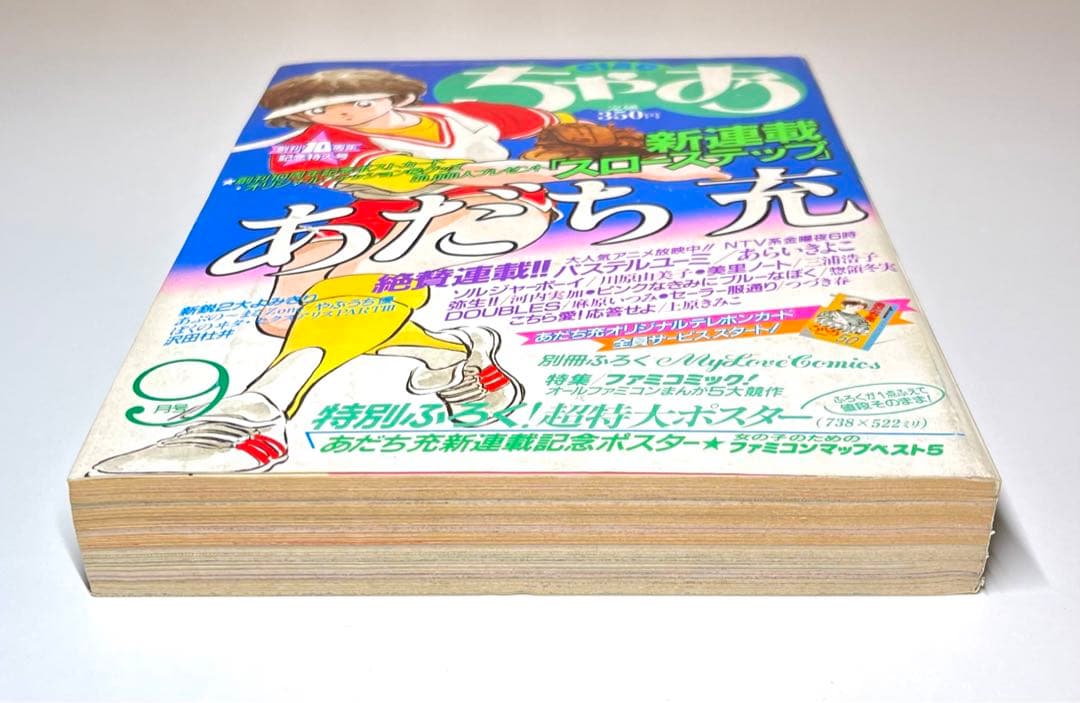 ちゃお
定価
350円
創刊10周年
記念特大号
新連載
「スローステップ」
あだち充
大人気アニメ放映中!! NTV系金曜夜6時
絶賛連載!! パステルユーミ/あらいきよこ
ソルジャーボーイ/川原由美子●美里ノート/三浦浩子
弥生!!/河内実加●ピンクなきみにブルーなぼく/惣領冬実
DOUBLES/麻原いつみ●セーラー服通り/つづき春
こちら愛!応答せよ/上原きみこ
新鋭2大よみきり
やぶうち優
沢田杜丼
あだち充オリジナルテレホンカード
全員サービススタート!
50
別冊ふろく My Love Comics
特集/ファミコミック!
オールファミコンまんが5大競作
ふろくが1点ふえて
値段そのまま!
9月号
特別ふろく!超特大ポスター(738×522ミリ)
あだち充新連載記念ポスター★女の子のための
ファミコンマップベスト5